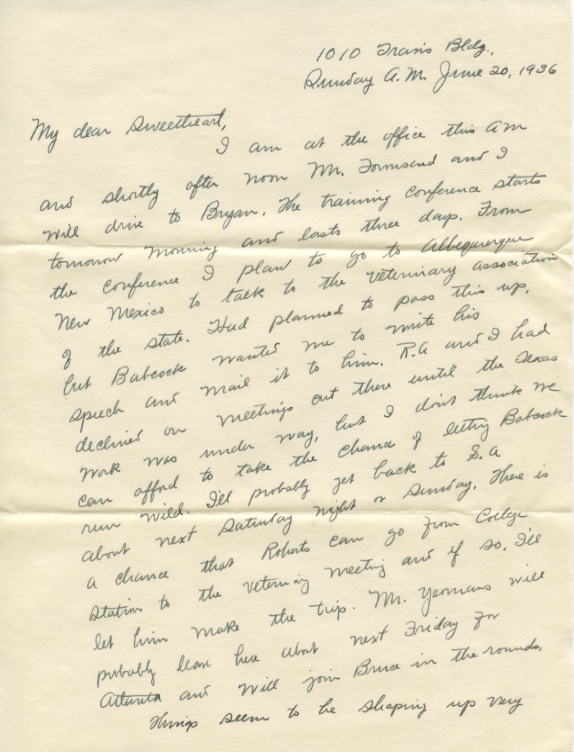 1010 Travis Bldg.,
Sunday A.M. June 20, 1936
My dear Sweetheart,
I am at the office this AM
and shortly after noon Mr. Townsend and I
will drive to Bryan. The training conference starts
tomorrow morning and lasts three days. From
the conference I plan to go to Albequerque
New Mexico to talk to the Veterinary association
of the state. Had planned to pass this up,
but Babcock wanted me to write his
speech and mail it to him. R.A and I had
declined on meetings out there until the Texas
work was under way, but I don't think we
can afford to take the chance of letting Babcock
run wild. I'll probably get back to S.A
about next Saturday night or Sunday. There is
a chance that Roberts can go from College
Station to the Veterinary meeting and if so, I'll
let him make the trip. Mr. Yeomans will
probably leave here about next Friday for
Atlanta and will join Bruce in the rounds.
Things seem to be shaping up very